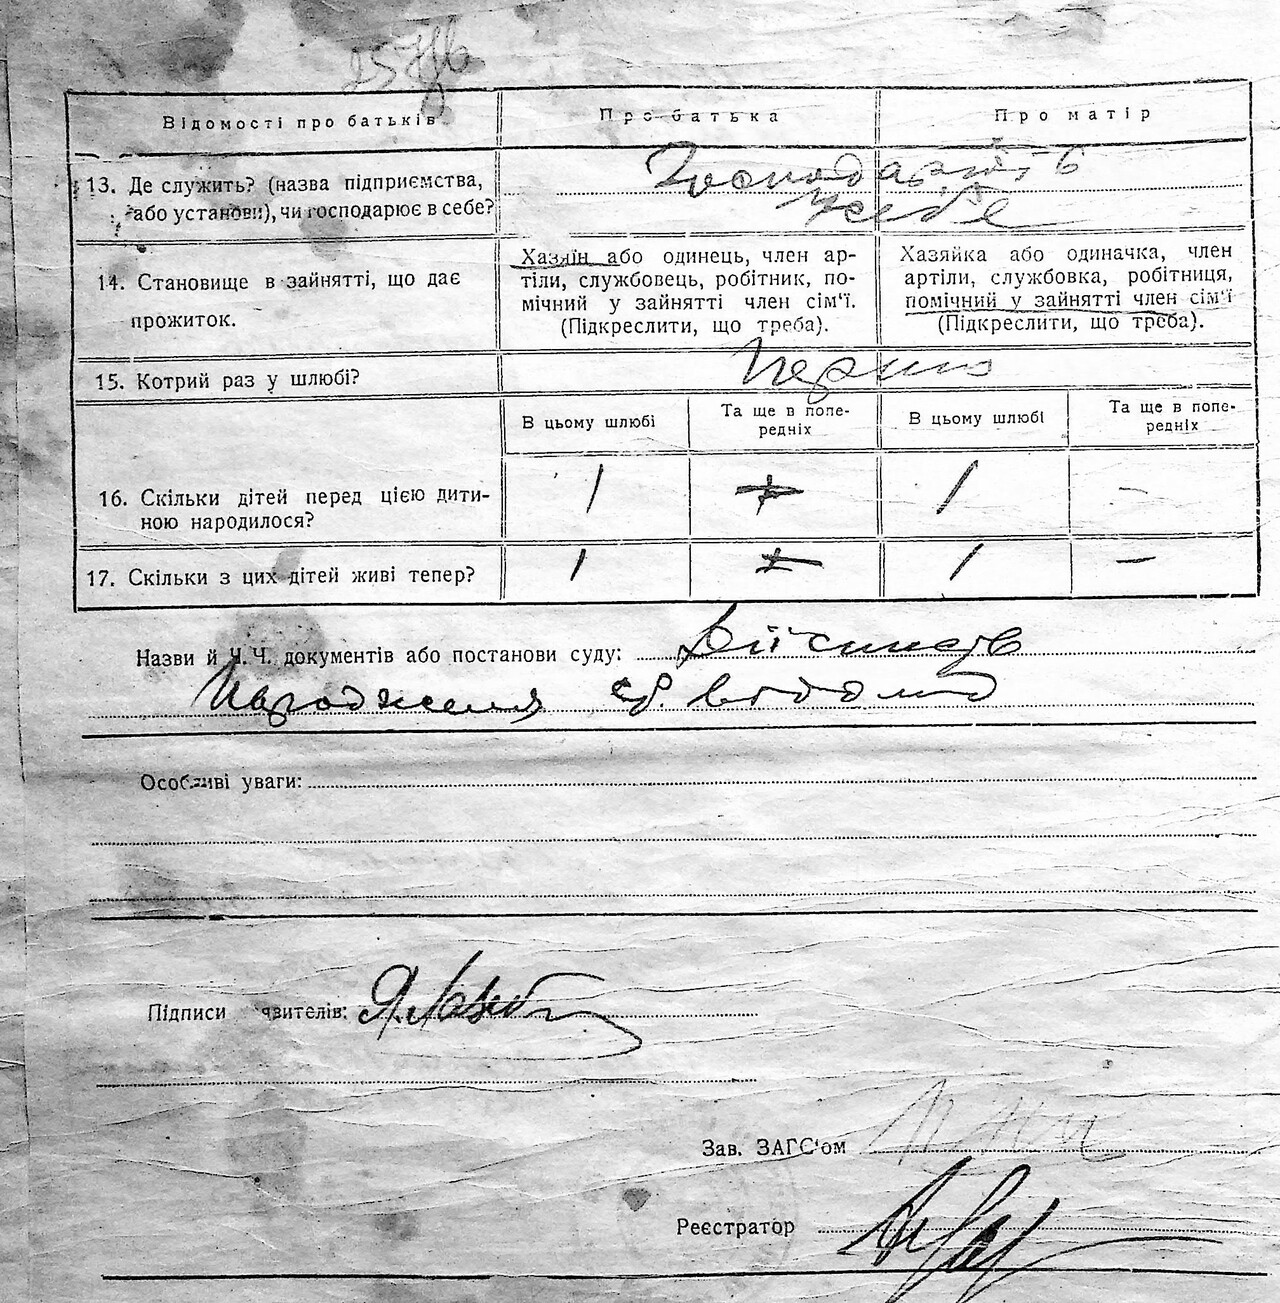 Відомості про батьків
Про батька
Про матір
13. Де служить? (назва підприємства,
або установи), чи господарює в себе?
14. Становище в зайнятті, що дає
прожиток.
Хазяїн або одинець, член ар-
тіли, службовець, робітник, по-
мічний у зайнятті член сім'ї.
(Підкреслити, що треба).
Хазяйка або одиначка, член
артіли, службовка, робітниця,
помічний у зайнятті член сім'ї
(Підкреслити, що треба).
15. Котрий раз у шлюбі?
В цьому шлюбі
Та ще в попе-
редніх
В цьому шлюбі
Та ще в попе-
редніх
16. Скільки дітей перед цією дити-
ною народилося?
1
1 -
17. Скільки з цих дітей живі тепер?
1
1 -
Назви й Ч.Ч. документів або постанови суду:
Народження
Особливі уваги:
Підписи явителів:
Зав. ЗАГС'ом
Реєстратор